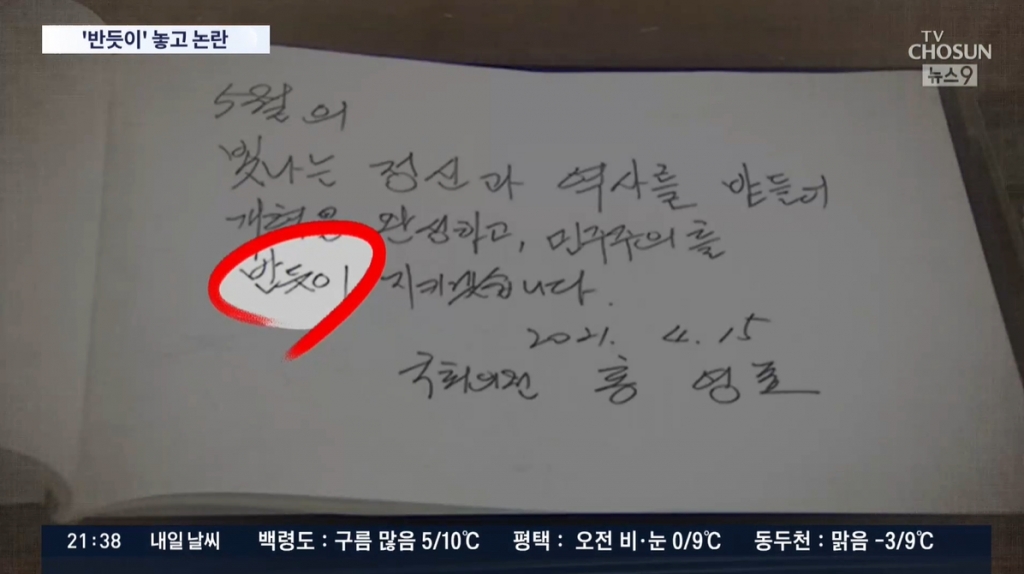 '반듯이' 놓고 논란
TV
CHOSUN
뉴스9
5월의
빛나는 정신과 역사를 받들어
개혁을 완성하고, 민주주의를
반듯이 지키겠습니다.
2021. 4. 15
국회의원 홍영표
21:38 내일 날씨 백령도 : 구름 많음 5/10℃ 평택 : 오전 비·눈 0/9℃ 동두천 : 맑음 -3/9℃